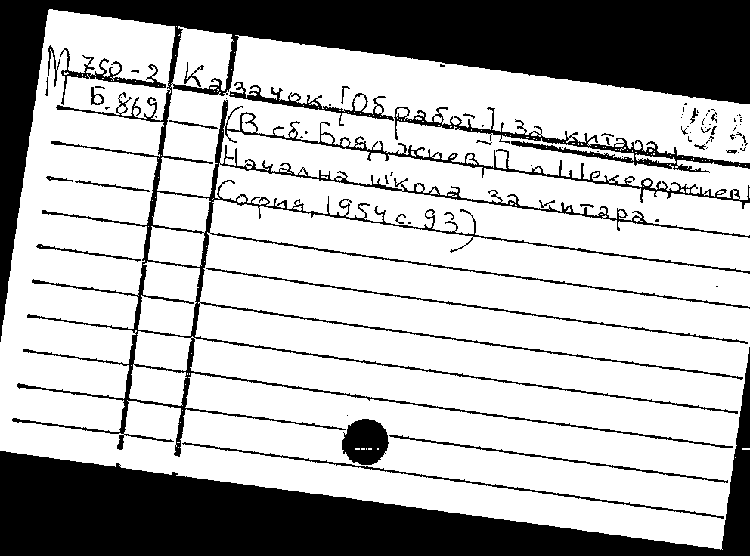 М 750-2 Казачок. [Обработ.]; За китара.
493
Б.869 (В сб. Бояджиев, П и Шекерджиев,
Начална школа за китара.
София, 1954 с. 93)